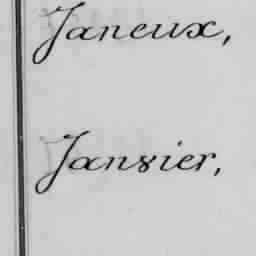 Janeux,
Janvier,